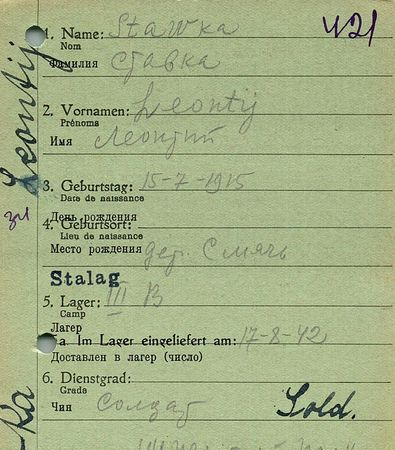 421
1. Name: Stawka
Nom
Фамилия Ставка
Leontij
2. Vornamen: Leontij
Prénoms
Имя Леонтий
3. Geburtstag: 15-7-1915
Date de naissance
День рождения
4. Geburtsort:
Lieu de naissance
Место рождения дер. Смячь
Stalag
5. Lager: III B
Camp
Лагер
a. Im Lager eingeliefert am: 17-8-42
Доставлен в лагер (число)
6. Dienstgrad:
Grade
Чин солдат Sold.
ka